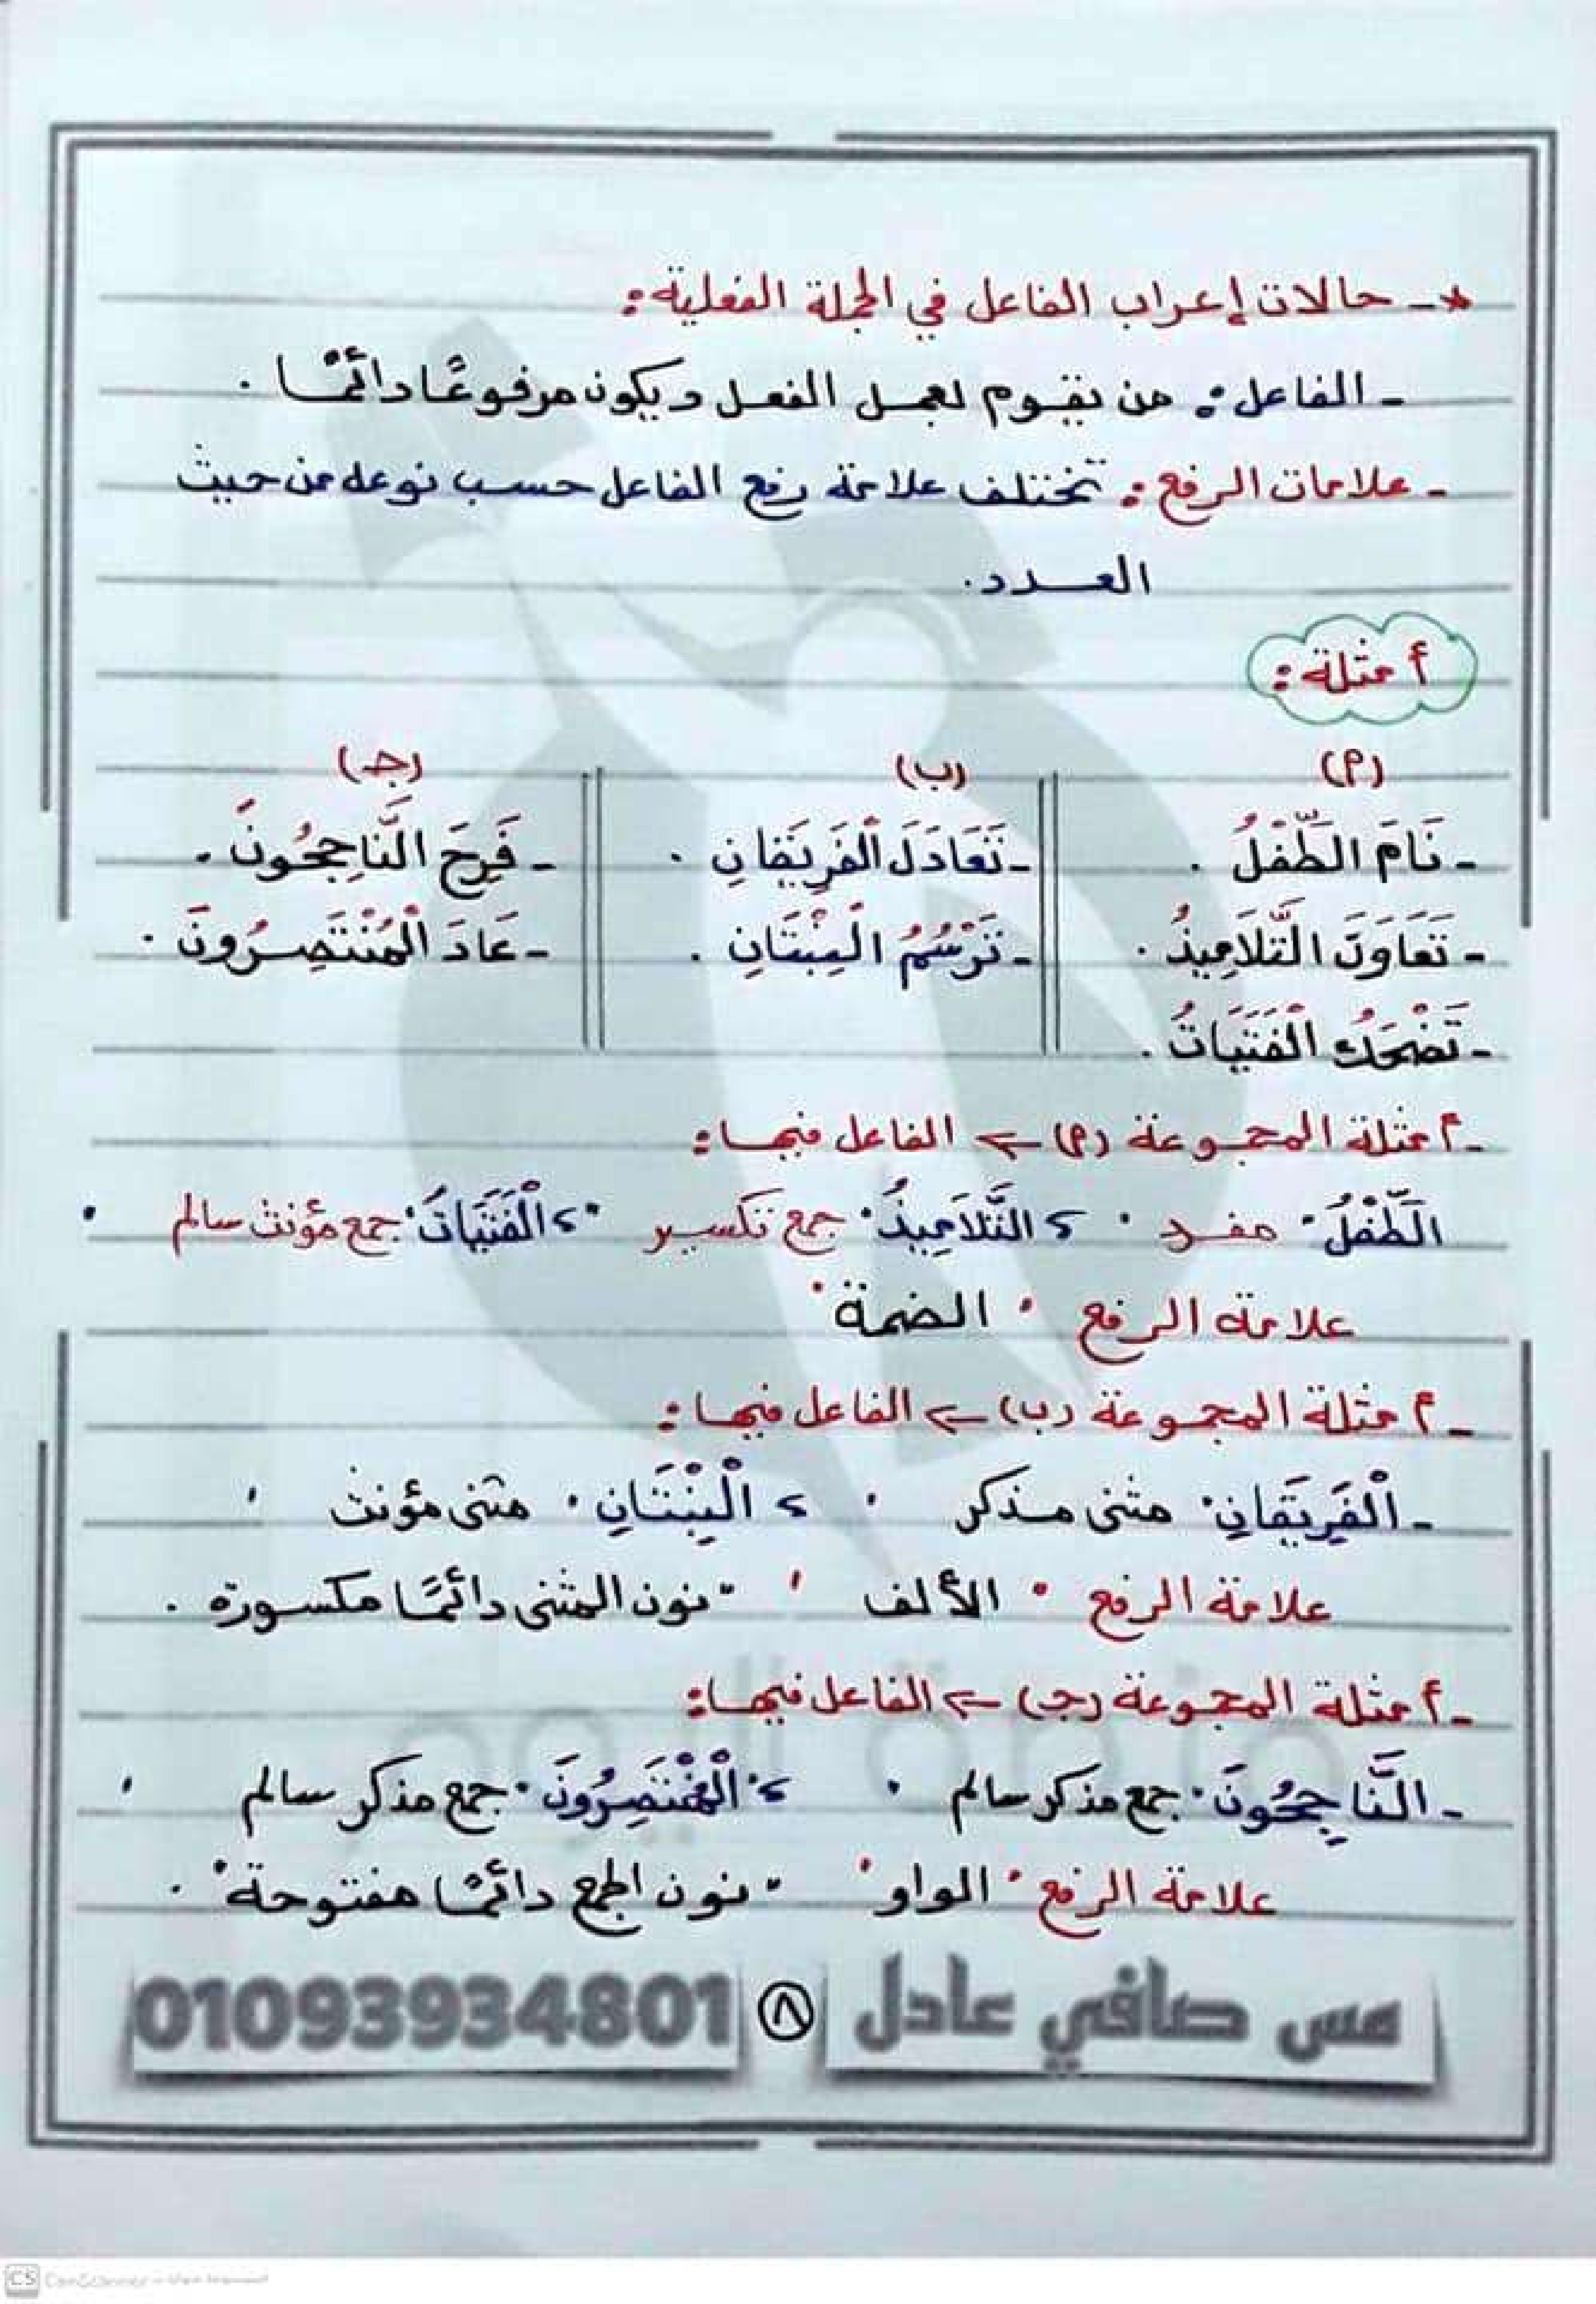 *- حالات إعراب الفاعل في الجملة الفعلية:
- الفاعل: من يقوم بعمل الفعل ويكون مرفوعًا دائمًا.
- علامات الرفع: تختلف علامة رفع الفاعل حسب نوعه من حيث
العدد.
أمثلة:
(أ) (ب) (جـ)
- نَامَ الطِّفْلُ. - تَعَادَلَ الْفَرِيقَانِ. - فَرِحَ النَّاجِحُونَ.
- تَعَاوَنَ التَّلَامِيذُ. - تَرْسُمُ الْبِنْتَانِ. - عَادَ الْمُنْتَصِرُونَ.
- تَضْحَكُ الْفَتَيَاتُ.
- أمثلة المجموعة (أ) ← الفاعل فيها:
الطِّفْلُ "مفرد" ، التَّلَامِيذُ "جمع تكسير" ، الْفَتَيَاتُ "جمع مؤنث سالم"
علامة الرفع "الضمة"
- أمثلة المجموعة (ب) ← الفاعل فيها:
- الْفَرِيقَانِ "مثنى مذكر" ، الْبِنْتَانِ "مثنى مؤنث"
علامة الرفع "الألف" "نون المثنى دائمًا مكسورة.
- أمثلة المجموعة (جـ) ← الفاعل فيها:
- النَّاجِحُونَ "جمع مذكر سالم" ، الْمُنْتَصِرُونَ "جمع مذكر سالم"
علامة الرفع "الواو" "نون الجمع دائمًا مفتوحة".
مس صافي عادل ٨ 01093934801
CS CamScanner